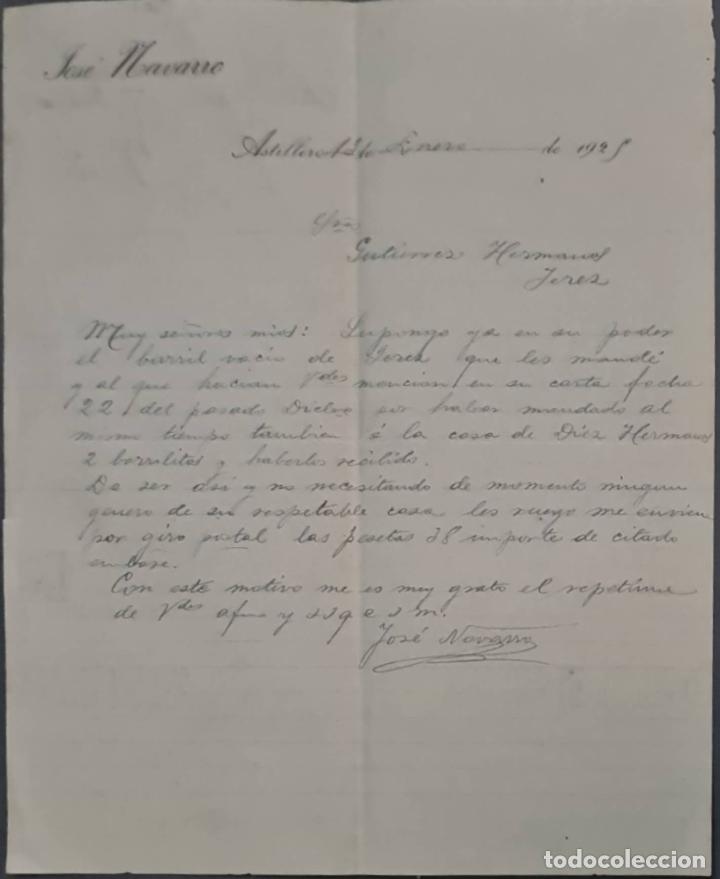 José Navarro
Astillero 12 de Enero de 1925
Sres
Gutierrez Hermanos
Jerez
Muy señores mios: Supongo ya en su poder
el barril vacío de Jerez que les mandé
y al que hacian Vdes mencion en su carta fecha
22 del pasado Dicbre por haber mandado al
mismo tiempo tambien á la casa de Díez Hermanos
2 barrilitos y haberlos recibido.
De ser asi y no necesitando de momento ningun
genero de su respetable casa les ruego me envien
por giro postal las pesetas 38 importe de citado
embase.
Con este motivo me es muy grato el repetirme
de Vdes afmo y s s q e s m.
José Navarro
todocoleccion
todocoleccion.net